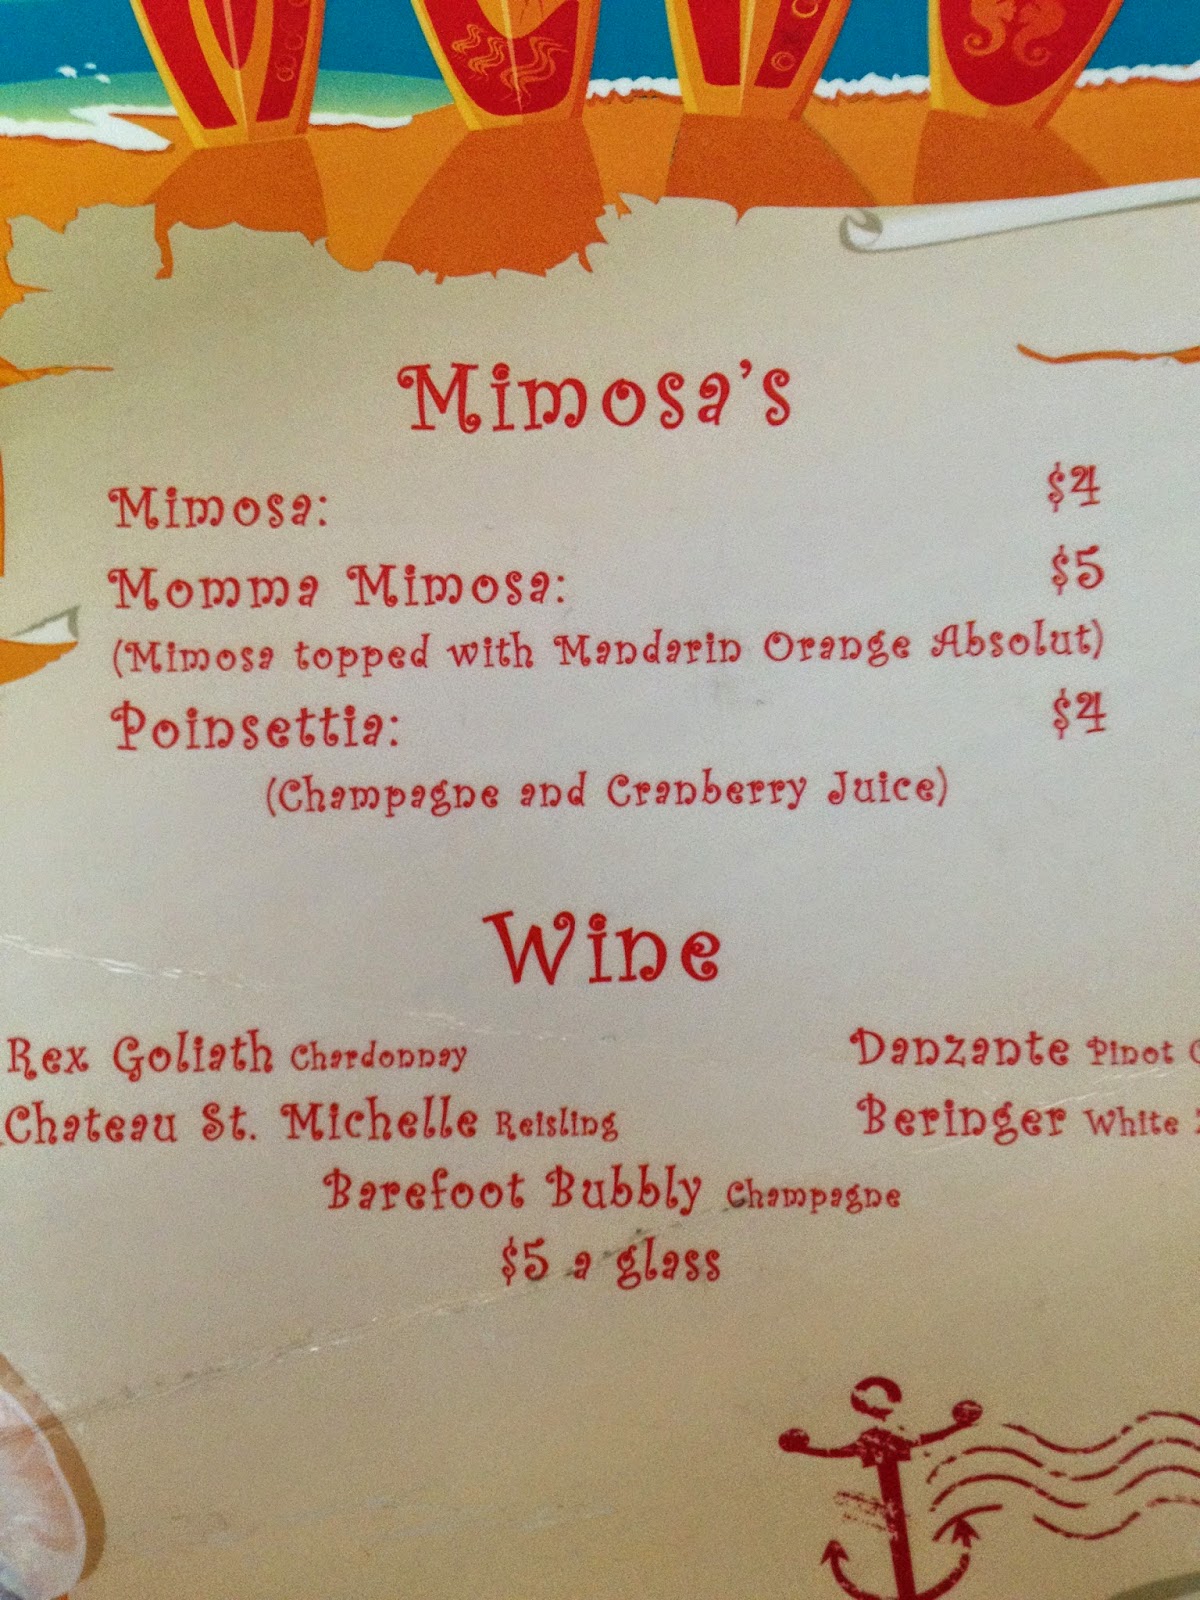 Mimosa's
Mimosa: $4
Momma Mimosa: $5
(Mimosa topped with Mandarin Orange Absolut)
Poinsettia: $4
(Champagne and Cranberry Juice)
Wine
Rex Goliath Chardonnay Danzante Pinot
Chateau St. Michelle Reisling Beringer White
Barefoot Bubbly Champagne
$5 a glass